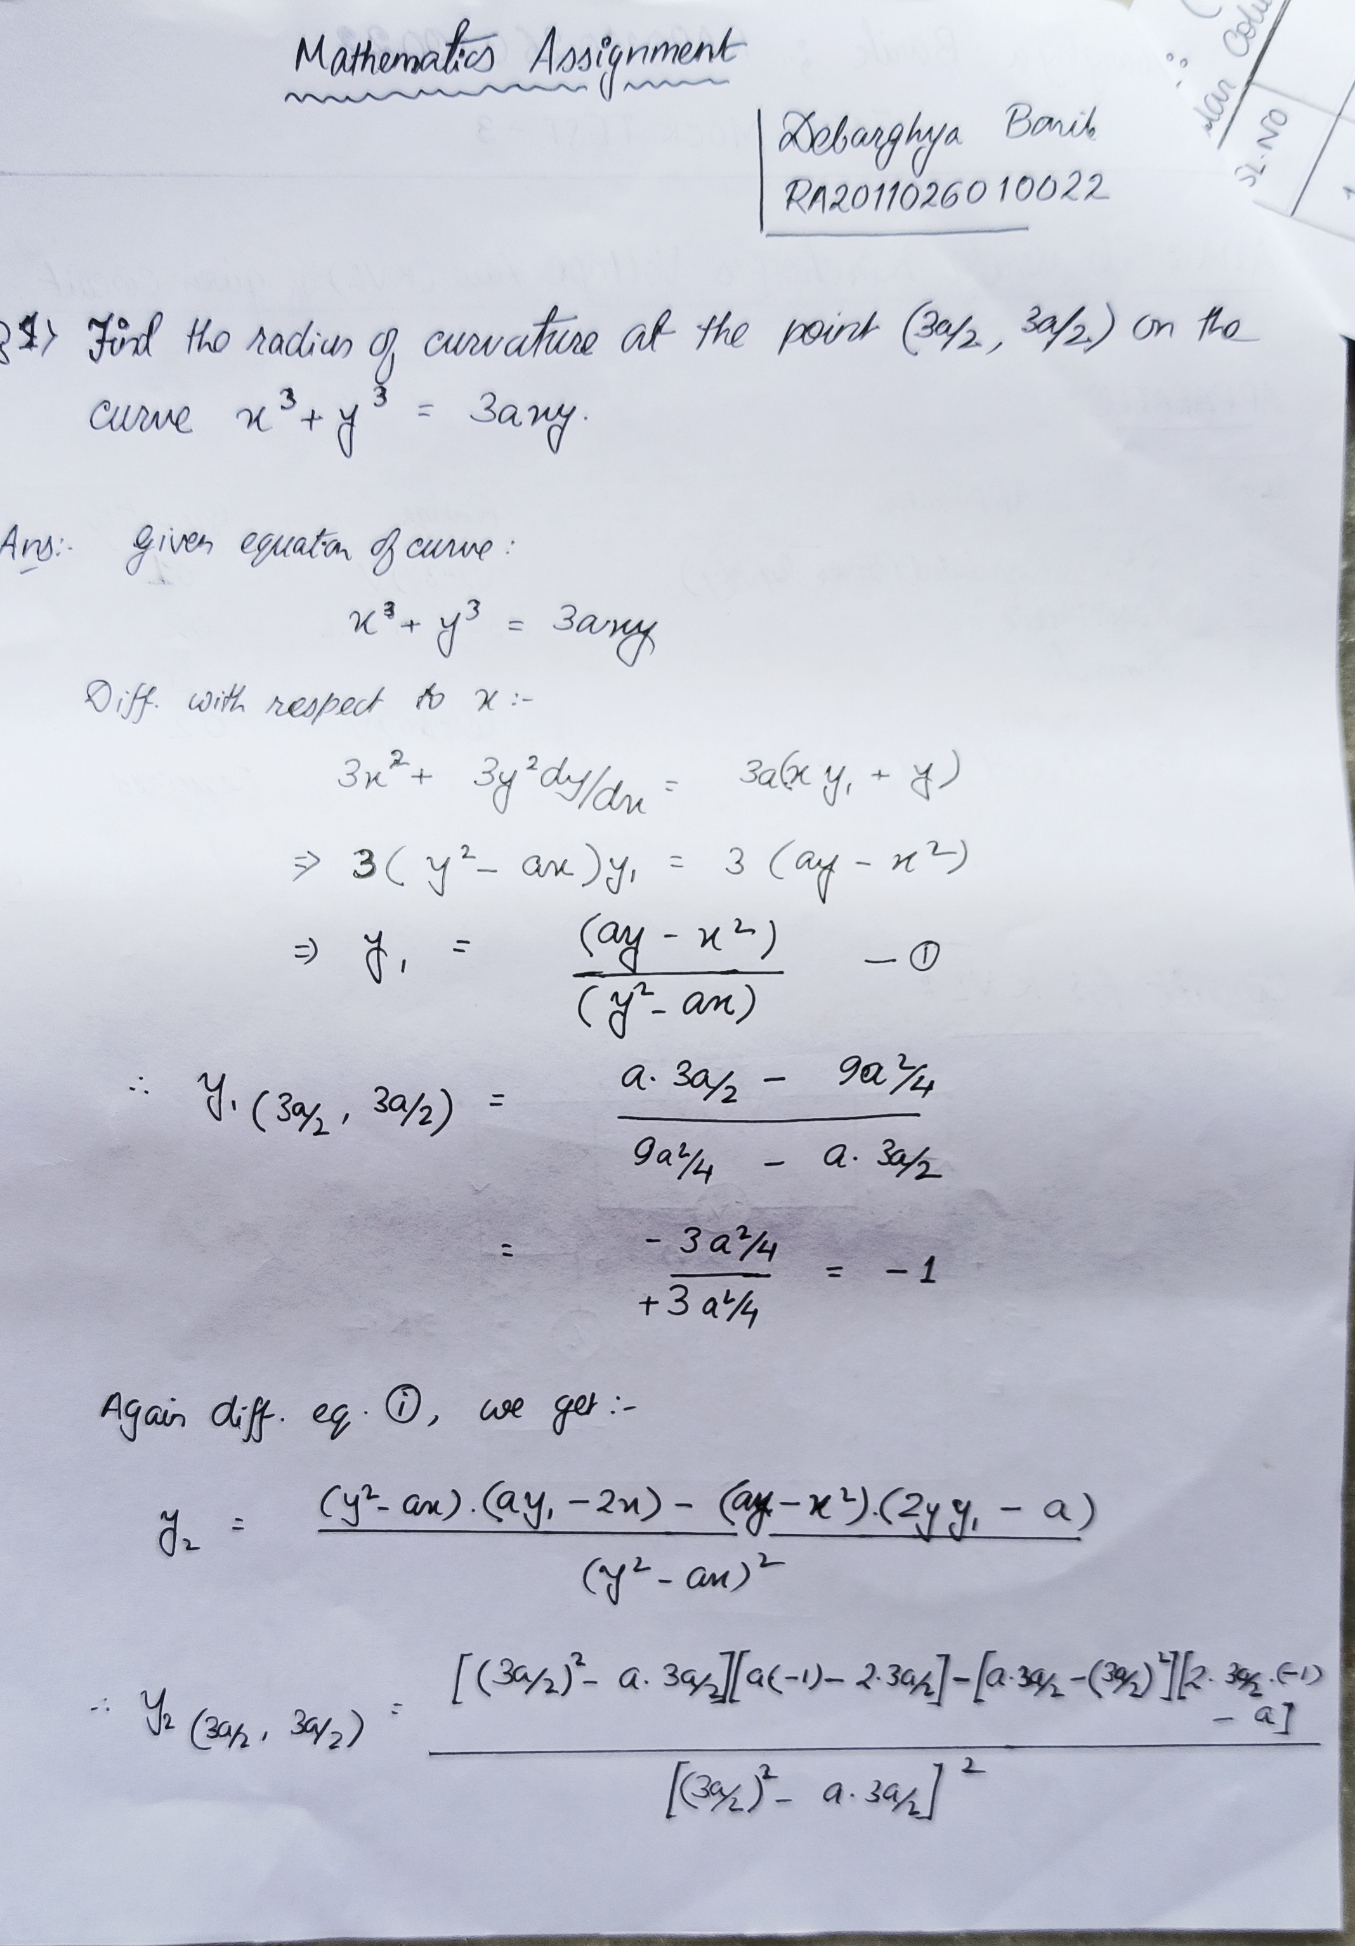 Mathematics Assignment
Debarghya Banik
RA2011026010022
SL.NO
1> Find the radius of curvature at the point (3a/2, 3a/2) on the
curve x³ + y³ = 3axy.
Ans:- Given equation of curve:
x³ + y³ = 3axy
Diff. with respect to x :-
3x² + 3y² dy/dx = 3a(x y₁ + y)
⇒ 3(y² - ax)y₁ = 3(ay - x²)
⇒ y₁ = (ay - x²) / (y² - ax) — ①
∴ y₁ (3a/2, 3a/2) = (a. 3a/2 - 9a²/4) / (9a²/4 - a. 3a/2)
= (- 3a²/4) / (+ 3a²/4) = - 1
Again diff. eq. ①, we get :-
y₂ = ((y² - ax).(ay₁ - 2x) - (ay - x²).(2yy₁ - a)) / (y² - ax)²
∴ y₂ (3a/2, 3a/2) = [(3a/2)² - a. 3a/2][a(-1) - 2.3a/2] - [a.3a/2 - (3a/2)²][2. 3a/2 .(-1) - a] / [(3a/2)² - a. 3a/2]²